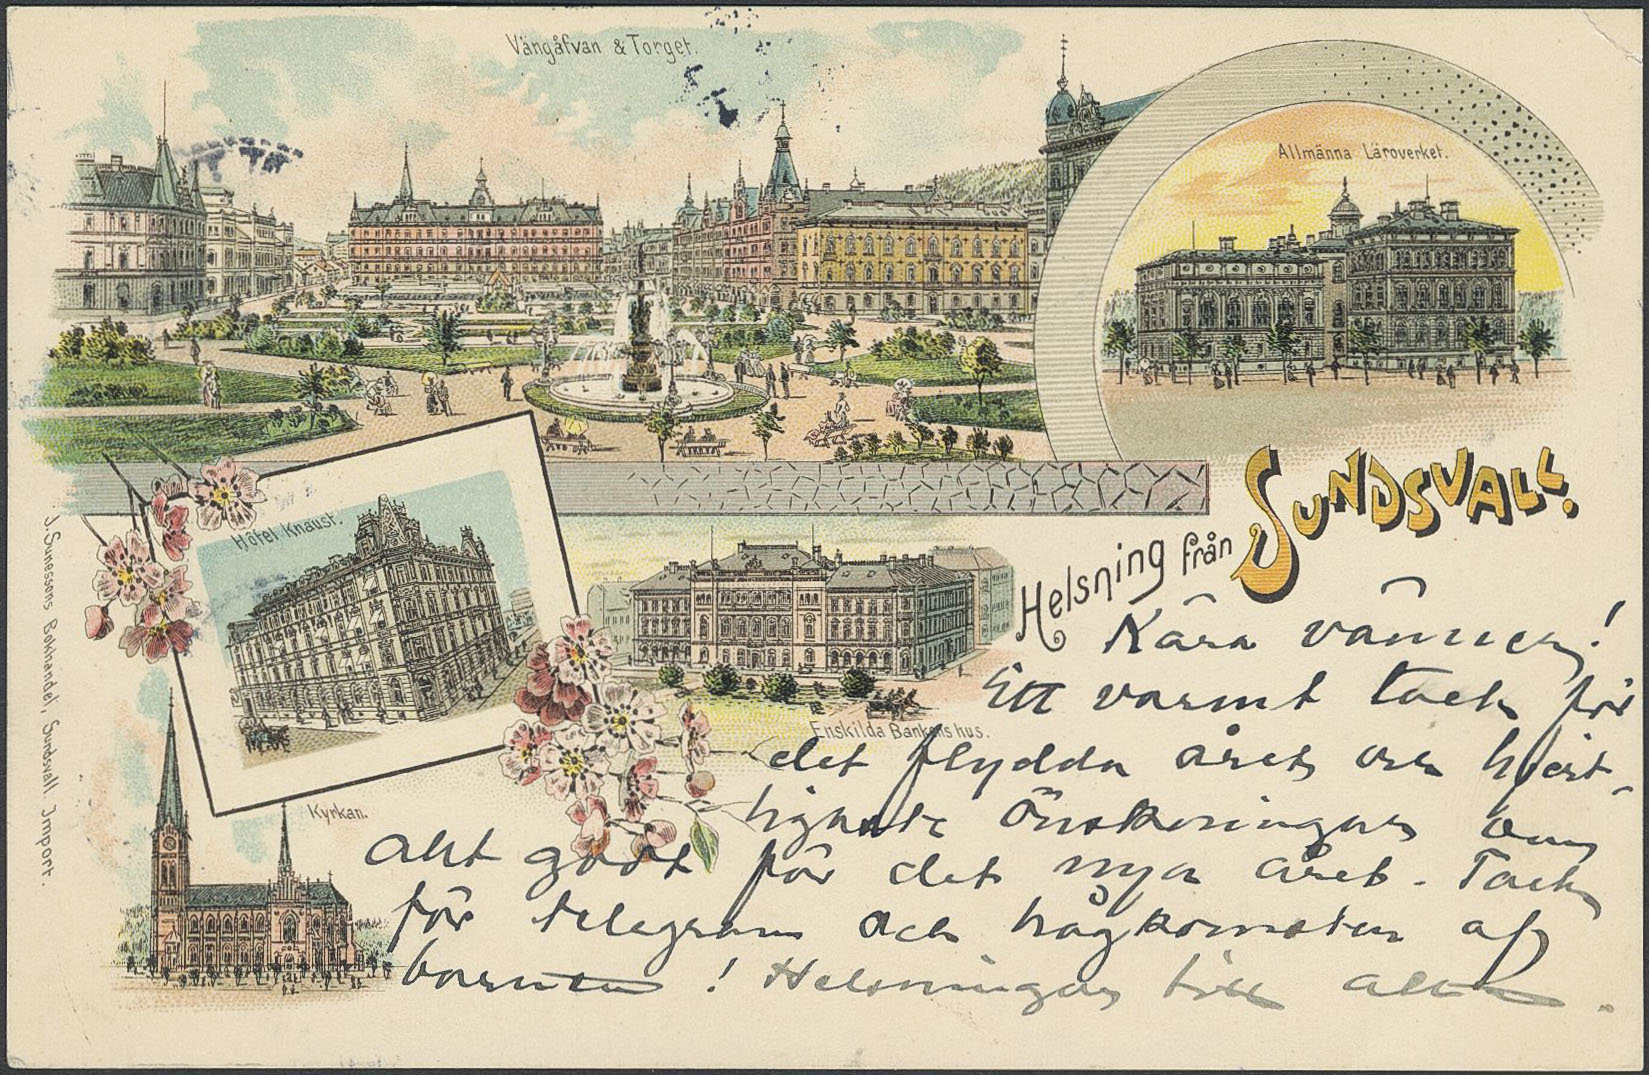 Vängåfvan & Torget.
Allmänna Läroverket.
Hôtel Knaust.
Helsning från SUNDSVALL.
Enskilda Bankens hus.
Kyrkan.
J. Sunessons Bokhandel, Sundsvall. Import.
Kära vänner!
Ett varmt tack för
det flydda året och hjert-
ligaste önskningar om
allt godt för det nya året. Tack
för telegram och hågkomsten af
barnen! Helsningar till alla.